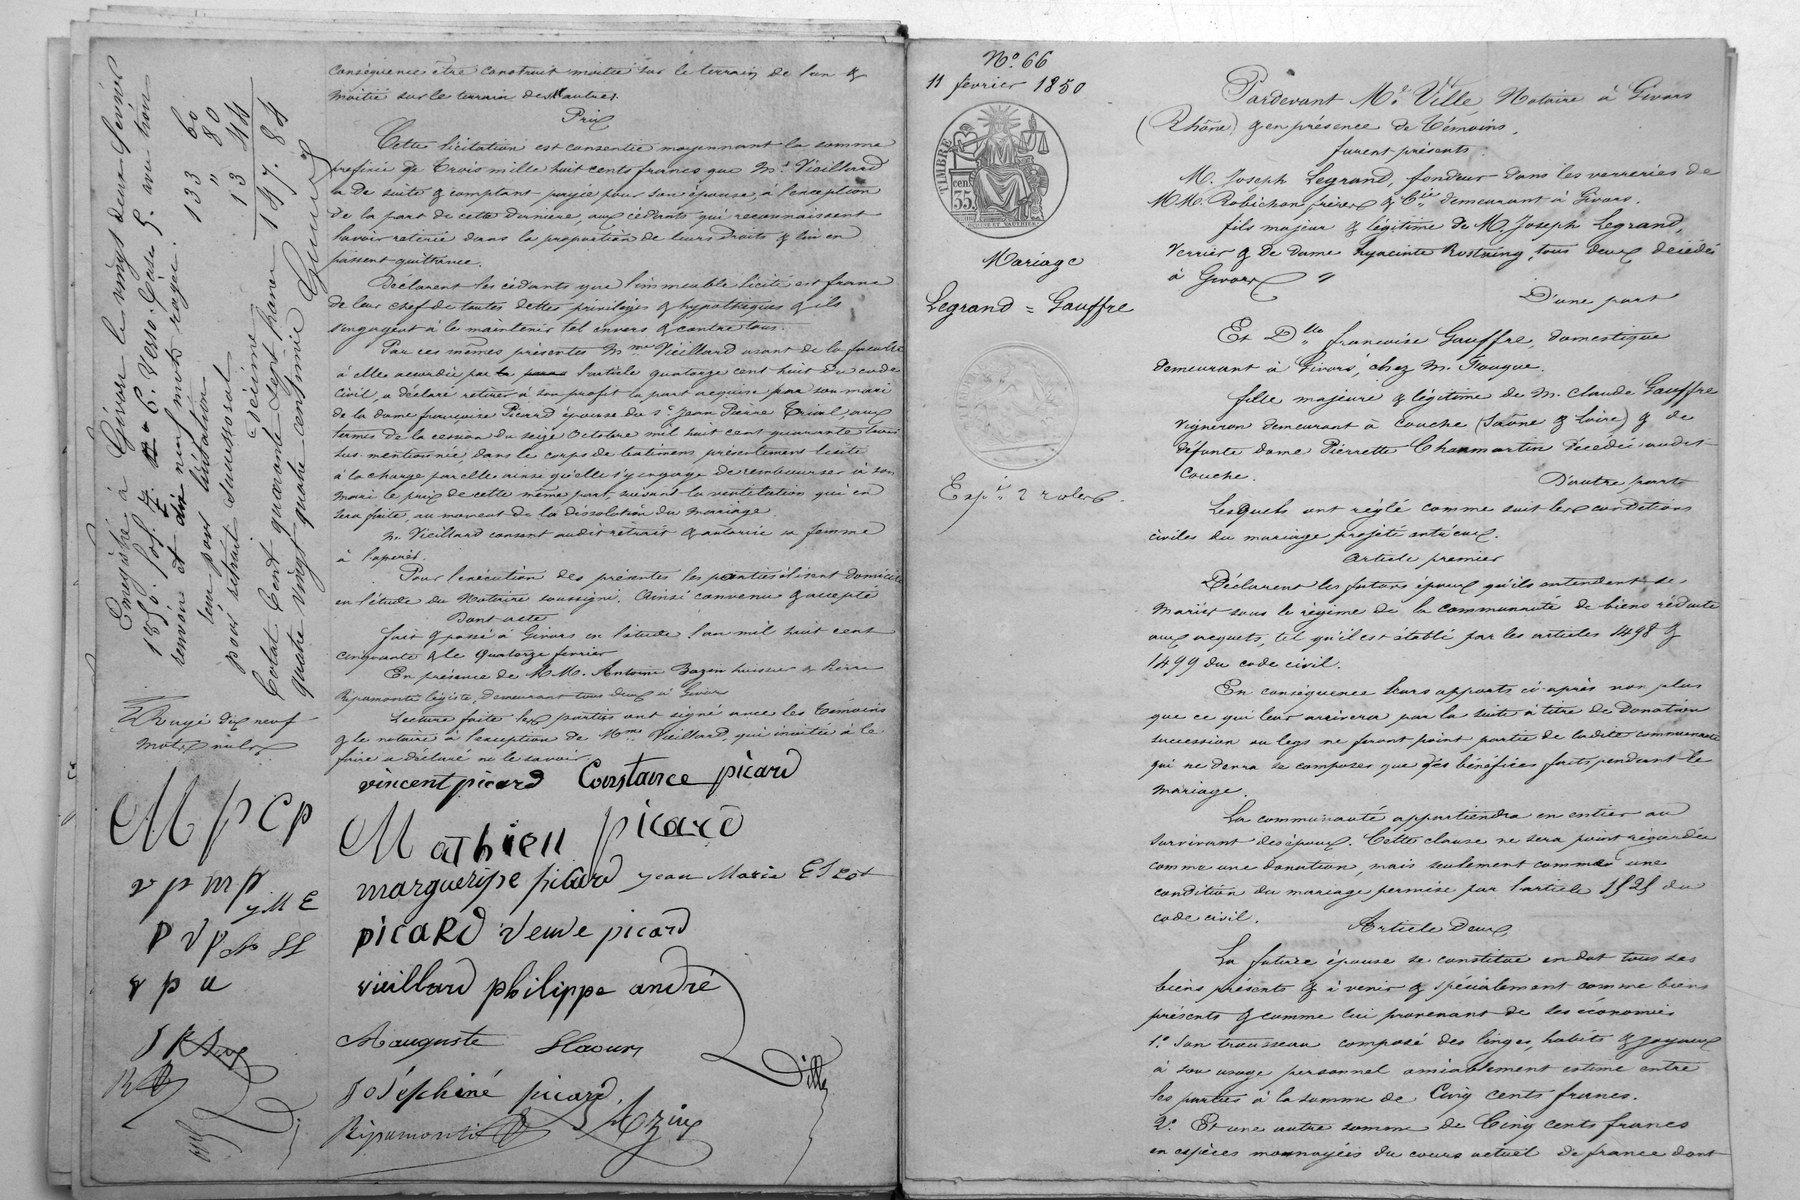 conséquence être construit moitié sur le terrain de l'un &
moitié sur le terrain des autres.
Prix
Cette licitation est consentie moyennant la somme
prefixée de Trois mille huit cents francs que Mr Vieillard
a de suite & comptant payée pour son épouse, à l'exception
de la part de cette dernière, aux cédants qui reconnaissent
l'avoir retirée dans la proportion de leurs droits & lui en
passent quittance.
Déclarent les cédants que l'immeuble licité est franc
de leur chef de toutes dettes privilèges & hypothèques & ils
s'engagent à le maintenir tel envers & contre tous.
Par ces mêmes présentes Mme Vieillard usant de la faculté
à elle accordée par l'article quatorze cent huit du code
civil, a déclaré retirer à son profit la part acquise par son mari
de la dame françoise Picard épouse du Sr Jean Pierre aux
termes de la cession du seize Octobre mil huit cent quarante trois
sus-mentionnée, dans le corps de bâtimens présentement licité
à la charge par elle ainsi qu'elle s'y engage de rembourser à son
mari le prix de cette même part, suivant la ventilation qui en
sera faite, au moment de la dissolution du mariage.
Mr Vieillard consent audit retrait & autorise sa femme
à l'opérer.
Pour l'exécution des présentes les parties élisent domicile
en l'étude du Notaire soussigné. Ainsi convenu & accepté
Dont acte
fait & passé à Givors en l'étude l'an mil huit cent
cinquante & le quatorze fevrier
En présence de M.M. Antoine Bazin huissier & Pierre
Ripamonti légiste, demeurant tous deux à Givors
Lecture faite les parties ont signé avec les témoins
& le notaire à l'exception de Mme Vieillard, qui invitée à le
faire a déclaré ne le savoir
vincent picard Constance picard
Mathieu picard
marguerite picard jean Marie
picard veuve picard
vieillard philippe andré
auguste
Joséphine picard.
Ripamonti
Ville
Enregistré à Givors le vingt deux février
1850. fol. 6. Verso. Case 5. avec trois
renvois et dix neuf mots rayés.
pour licitation 133 60
pour retrait successoral " 80
Décime 13 44
147. 84
Total. Cent quarante sept francs
quatre vingt quatre centimes
Rayé dix neuf
mots nuls
M p C p
v p m p
y M E
p v p
v p a
No 66
11 fevrier 1850
TIMBRE
35 cen.
Mariage
Legrand = Gouffre
Expon 2 roles
Pardevant Me Ville Notaire à Givors
(Rhône) & en présence de témoins,
furent présents :
M. Joseph Legrand, fondeur dans les verreries de
MM. Robichon frères & Cie demeurant à Givors.
fils majeur & légitime de M. Joseph Legrand,
Verrier & de dame hyacinte Rustning, tous deux décédés
à Givors "
D'une part
Et Dlle francoise Gouffre, domestique
demeurant à Givors, chez M. Fougue.
fille majeure & légitime de M. Claude Gouffre
Vigneron demeurant à Couche (Saône & Loire) & de
défunte dame Pierrette Chanmartin décédée audit
Couche.
D'autre part
Lesquels ont réglé comme suit les conditions
civiles du mariage projeté entr'eux.
Article premier
Déclarent les futurs époux qu'ils entendent se
Marier sous le régime de la communauté de biens réduite
aux acquets, tel qu'il est établi par les articles 1498 &
1499 du code civil.
En conséquence leurs apports ci-après non plus
que ce qui leur arrivera par la suite à titre de donation
succession ou legs ne feront point partie de ladite communauté
qui ne devra se composer que des bénéfices faits pendant le
mariage.
La communauté appartiendra en entier au
survivant des époux. Cette clause ne sera point regardée
comme une donation, mais seulement comme une
condition du mariage permise par l'article 1525 du
code civil.
Article Deux
La future épouse se constitue en dot tous ses
biens présents & à venir & spécialement comme biens
présents & comme lui provenant de ses économies
1o Son trousseau composé des linges, habits & joyaux
à son usage personnel amiablement estimé entre
les parties à la somme de Cinq cents francs.
2o Et une autre somme de Cinq cents francs
en espèces monnayées du cours actuel de france dont